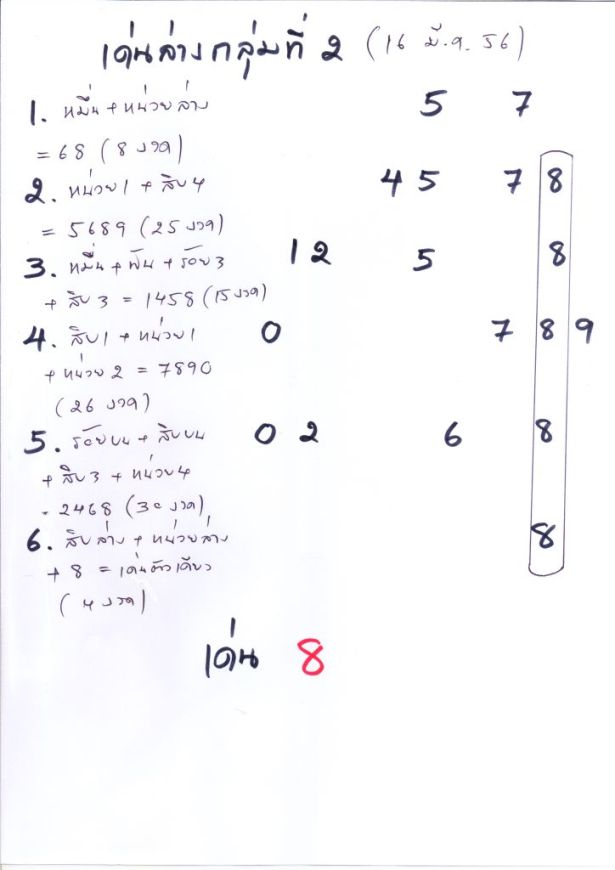 เด่นล่างกลุ่มที่ 2 (16 มี.ค. 56)
1. หมื่น + หน่วยล่าง 5 7
= 68 (8 งวด)
2. หน่วย 1 + สิบ 4 4 5 7 8
= 5689 (25 งวด)
3. หมื่น + พัน + ร้อย 3 1 2 5 8
+ สิบ 3 = 1458 (15 งวด)
4. สิบ 1 + หน่วย 1 0 7 8 9
+ หน่วย 2 = 7890
(26 งวด)
5. ร้อยบน + สิบบน 0 2 6 8
+ สิบ 3 + หน่วย 4
= 2468 (30 งวด)
6. สิบล่าง + หน่วยล่าง 8
+ 8 = เด่นตัวเดียว
(4 งวด)
เด่น 8